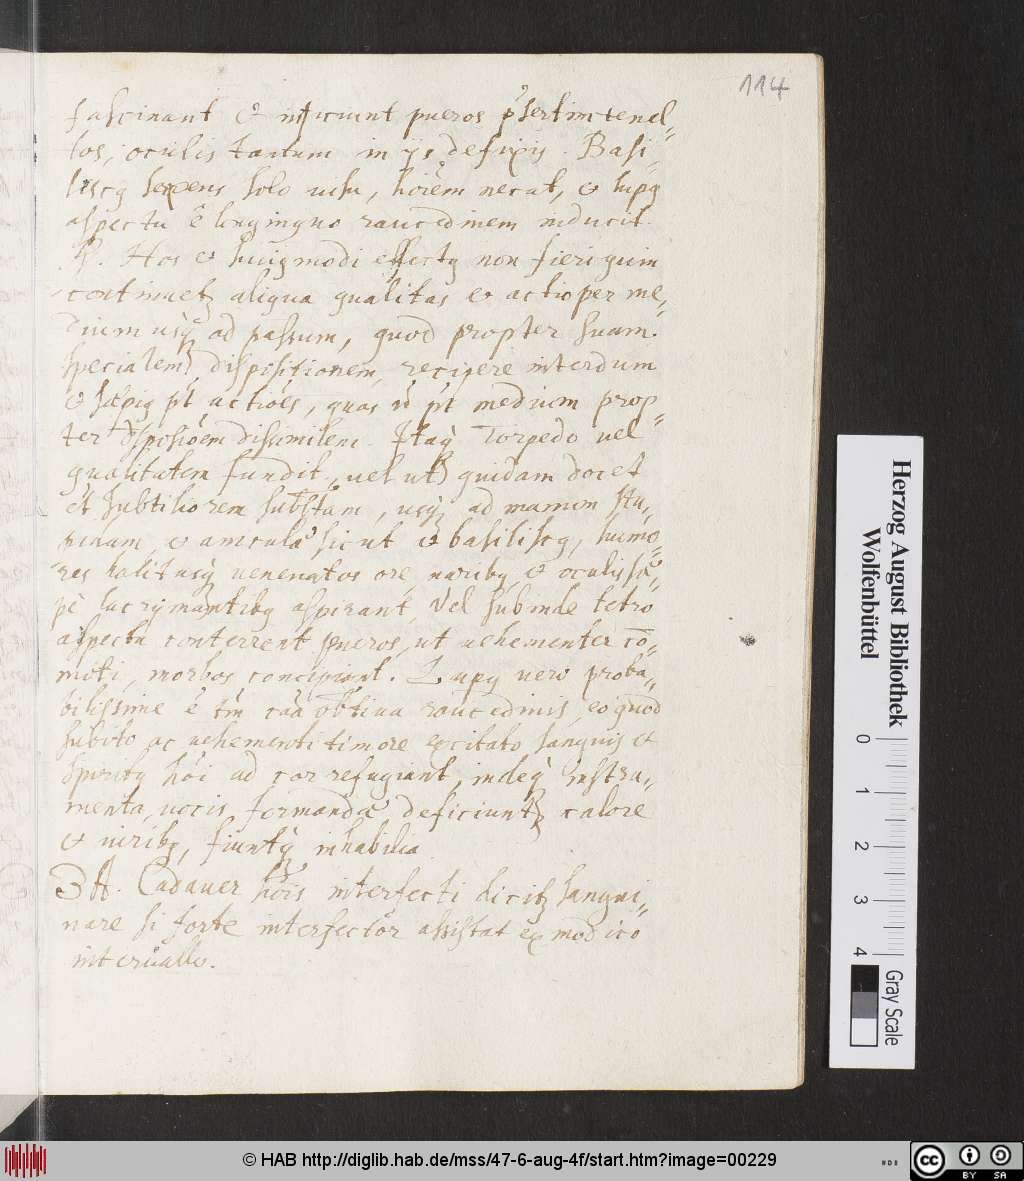 114
fascinant & inficiunt pueros p̱sertim tenel=
los, oculis tantum in ijs defixis. Basi=
liscꝯ serpens solo uisu, hoiēm necat, & lupꝯ
aspectu ê longinquo raucedinem inducit.
R. Hos & huiꝯmodi effectꝯ non fieri quin
continuetꝛ aliqua qualitas & actio per me=
dium usqꝫ ad passum, quod propter suam
specialem dispositionem, recipere interdum
& sæpiꝯ pt̄ actiōēs, quas nō pt̄ medium prop=
ter dispōsiōem dissimilem. Itaqꝫ Torpedo uel
qualitatem fundit, uel ut quidam docet
et subtiliorem substām, usqꝫ ad manum stu=
pidam, & anicula sicut & basiliscꝯ, humo=
res halitusqꝫ uenenatos ore naribꝯ & oculis sæ=
pè lacrymantibꝯ aspirant, Vel subinde tetro
aspectu conterrent pueros, ut uehementer cō=
moti, morbos concipiant. Lupꝯ uero proba=
bilissime ê tm̄ cāā raucedinis, eo quod
subito ac uehementi timore excitato sanguis &
spiritꝯ hōi ad cor refugiant, indeqꝫ instru=
menta uocis formandæ deficiuntꝛ calore
& uiribꝯ, fiuntqꝫ inhabilia
3 A. Cadauer hōis interfecti dicitꝛ sangui=
nare si forte interfector assistat ex modico
interuallo.
Herzog August Bibliothek
Wolfenbüttel
0
1
2
3
4
Gray Scale
© HAB http://diglib.hab.de/mss/47-6-aug-4f/start.htm?image=00229
HAB
cc
BY
SA